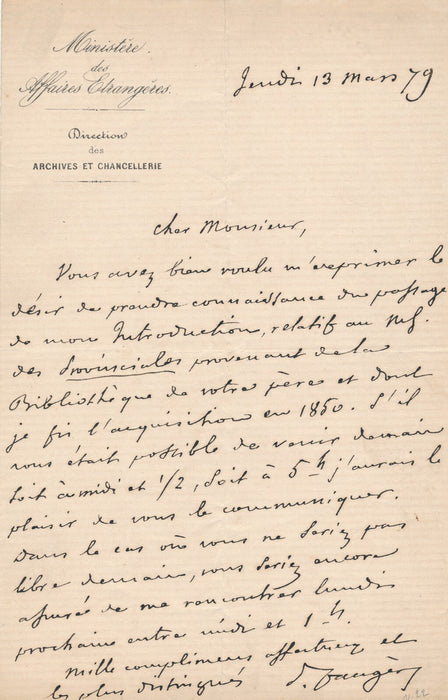 Ministère
des
Affaires Etrangères.
Direction
des
ARCHIVES ET CHANCELLERIE
Jeudi 13 Mars 79
cher Monsieur,
Vous avez bien voulu m'exprimer le
désir de prendre connaissance du passage
de mon Introduction, relatif au Mſ.
des Provinciales provenant de la
Bibliothèque de votre père et dont
je fis l'acquisition en 1850. S'il
vous était possible de venir demain
soit à midi et 1/2, soit à 5 h j'aurais le
plaisir de vous le communiquer.
Dans le cas où vous ne seriez pas
libre demain, vous seriez encore
assuré de me rencontrer lundi
prochain entre midi et 1 h.
mille complimens affectueux et
les plus distingués
P. Faugère